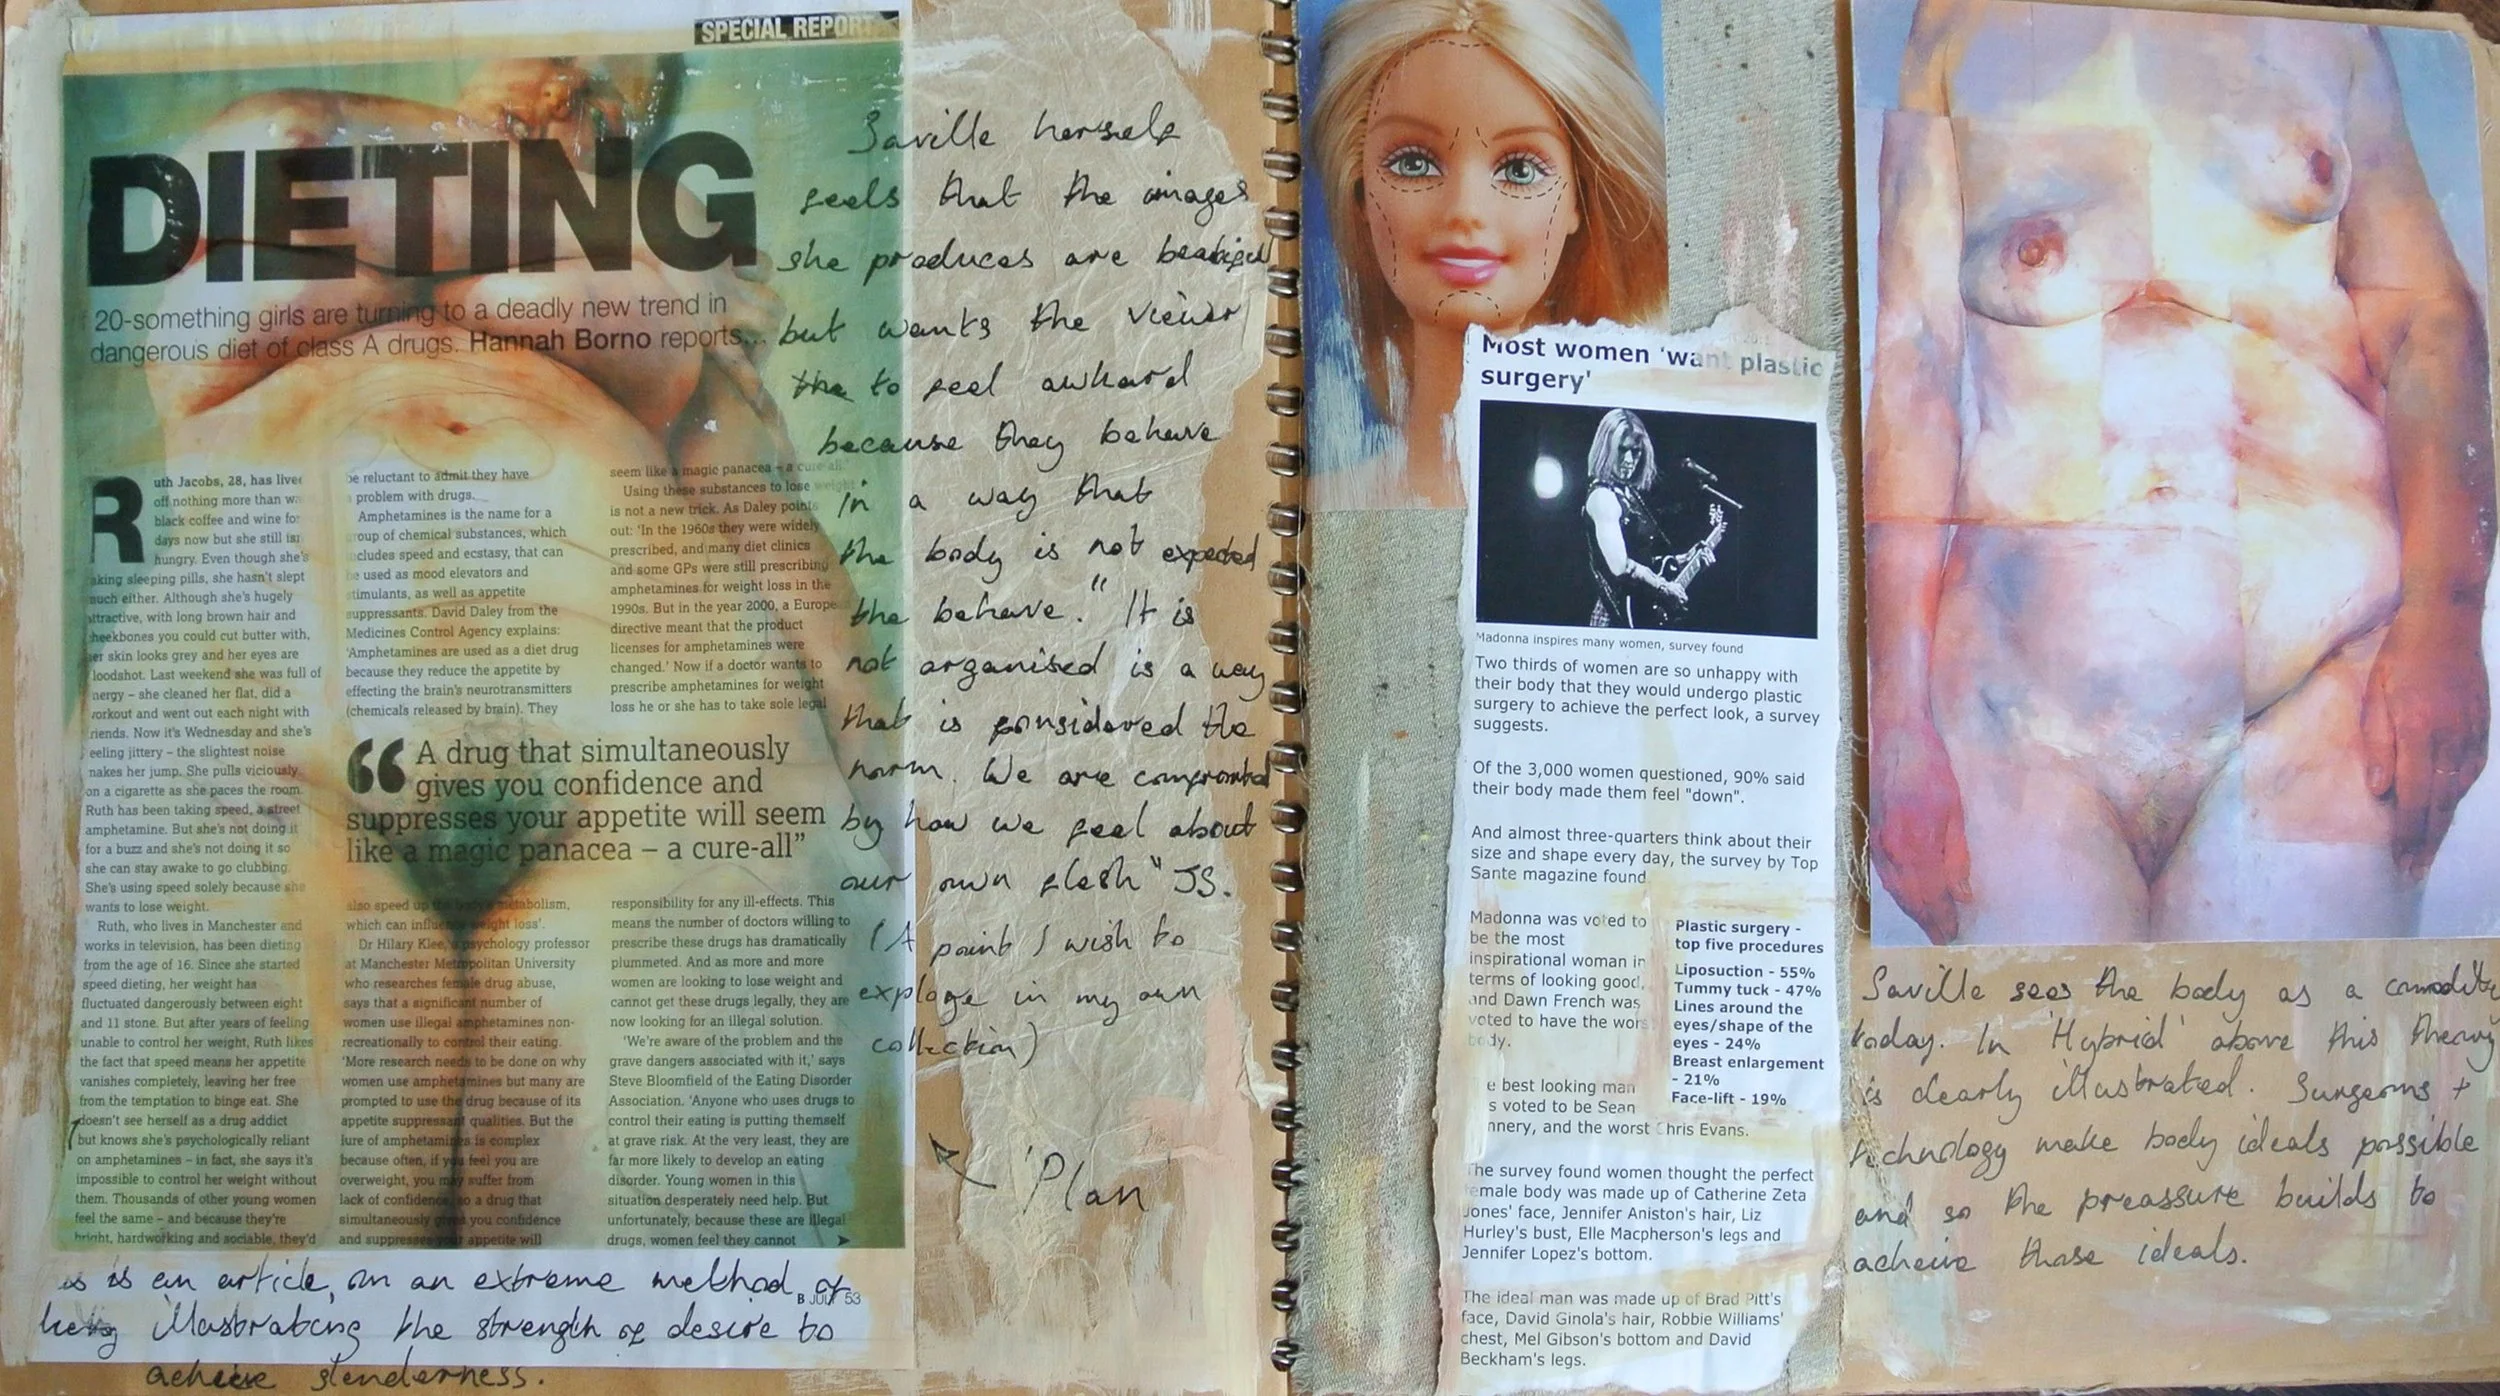 SPECIAL REPORT
DIETING
20-something girls are turning to a deadly new trend in
dangerous diet of class A drugs. Hannah Borno reports...
Ruth Jacobs, 28, has lived
off nothing more than
black coffee and wine for
days now but she still isn
hungry. Even though she's
aking sleeping pills, she hasn't slept
much either. Although she's hugely
attractive, with long brown hair and
cheekbones you could cut butter with,
her skin looks grey and her eyes are
loodshot. Last weekend she was full of
nergy – she cleaned her flat, did a
workout and went out each night with
riends. Now it's Wednesday and she's
eeling jittery – the slightest noise
makes her jump. She pulls viciously
on a cigarette as she paces the room.
Ruth has been taking speed, a street
amphetamine. But she's not doing it
for a buzz and she's not doing it so
she can stay awake to go clubbing.
She's using speed solely because she
wants to lose weight.
Ruth, who lives in Manchester and
works in television, has been dieting
from the age of 16. Since she started
speed dieting, her weight has
fluctuated dangerously between eight
and 11 stone. But after years of feeling
unable to control her weight, Ruth likes
the fact that speed means her appetite
vanishes completely, leaving her free
from the temptation to binge eat. She
doesn't see herself as a drug addict
but knows she's psychologically reliant
on amphetamines – in fact, she says it's
impossible to control her weight without
them. Thousands of other young women
feel the same – and because they're
bright, hardworking and sociable, they'd
be reluctant to admit they have
problem with drugs.
Amphetamines is the name for a
roup of chemical substances, which
ncludes speed and ecstasy, that can
be used as mood elevators and
stimulants, as well as appetite
suppressants. David Daley from the
Medicines Control Agency explains:
'Amphetamines are used as a diet drug
because they reduce the appetite by
effecting the brain's neurotransmitters
(chemicals released by brain). They
seem like a magic panacea – a cure-all.'
Using these substances to lose weight
is not a new trick. As Daley points
out: 'In the 1960s they were widely
prescribed, and many diet clinics
and some GPs were still prescribing
amphetamines for weight loss in the
1990s. But in the year 2000, a Europe
directive meant that the product
licenses for amphetamines were
changed.' Now if a doctor wants to
prescribe amphetamines for weight
loss he or she has to take sole legal
“A drug that simultaneously
gives you confidence and
suppresses your appetite will seem
like a magic panacea – a cure-all”
also speed up the body's metabolism,
which can influence weight loss'.
Dr Hilary Klee, a psychology professor
at Manchester Metropolitan University
who researches female drug abuse,
says that a significant number of
women use illegal amphetamines non-
recreationally to control their eating.
'More research needs to be done on why
women use amphetamines but many are
prompted to use the drug because of its
appetite suppressant qualities. But the
lure of amphetamines is complex
because often, if you feel you are
overweight, you may suffer from
lack of confidence, so a drug that
simultaneously gives you confidence
and suppresses your appetite will
responsibility for any ill-effects. This
means the number of doctors willing to
prescribe these drugs has dramatically
plummeted. And as more and more
women are looking to lose weight and
cannot get these drugs legally, they are
now looking for an illegal solution.
'We're aware of the problem and the
grave dangers associated with it,' says
Steve Bloomfield of the Eating Disorder
Association. 'Anyone who uses drugs to
control their eating is putting themself
at grave risk. At the very least, they are
far more likely to develop an eating
disorder. Young women in this
situation desperately need help. But
unfortunately, because these are illegal
drugs, women feel they cannot
B JULY 53
is is an article, on an extreme method of
illustrating the strength of desire to
acheive slenderness.
Saville herself
feels that the images
she produces are beatiful
but wants the viewer
the to feel awkard
because they behave
in a way that
the body is not expected
the behave." It is
not organised is a way
that is considered the
norm. We are confronted
by how we feel about
our own flesh" JS.
(A point I wish to
explore in my own
collection)
'Plan'
Most women 'want plastic
surgery'
Madonna inspires many women, survey found
Two thirds of women are so unhappy with
their body that they would undergo plastic
surgery to achieve the perfect look, a survey
suggests.
Of the 3,000 women questioned, 90% said
their body made them feel "down".
And almost three-quarters think about their
size and shape every day, the survey by Top
Sante magazine found
Madonna was voted to
be the most
inspirational woman in
terms of looking good,
and Dawn French was
voted to have the wors
body.
e best looking man
s voted to be Sean
nnery, and the worst Chris Evans.
Plastic surgery -
top five procedures
Liposuction - 55%
Tummy tuck - 47%
Lines around the
eyes/shape of the
eyes - 24%
Breast enlargement
- 21%
Face-lift - 19%
The survey found women thought the perfect
emale body was made up of Catherine Zeta
Jones' face, Jennifer Aniston's hair, Liz
Hurley's bust, Elle Macpherson's legs and
Jennifer Lopez's bottom.
The ideal man was made up of Brad Pitt's
face, David Ginola's hair, Robbie Williams'
chest, Mel Gibson's bottom and David
Beckham's legs.
Saville sees the body as a comodity
today. In 'Hybrid' above this theory
is clearly illustrated. Surgeons +
technology make body ideals possible
and so the preassure builds to
acheive those ideals.